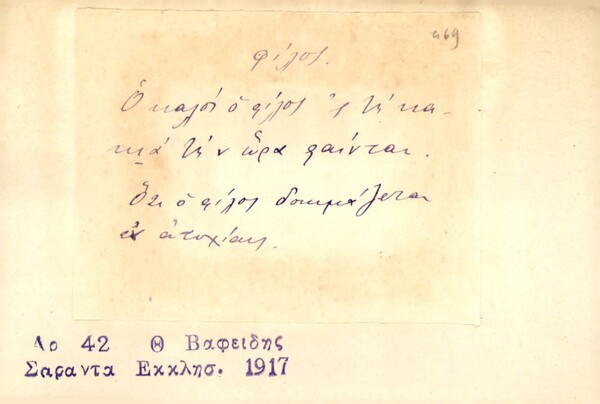 469
φίλος.
Ὁ καλός ὁ φίλος 'ς τή κα-
κιά τή ν ὥρα φαίνεται.
Ὅτι ὁ φίλος δοκιμάζεται
ἐν ἀτυχίαις.
Λρ 42 Θ Βαφειδης
Σαραντα Εκκλησ. 1917